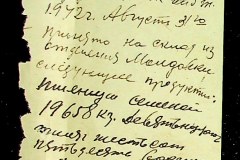 1942г. Август 31го
принято на склад из
отделения Молдовки
следующие продукты:
пшеницы семенной
19658 кг. Девятнадцать
тысяч шестьсот
пятьдесят